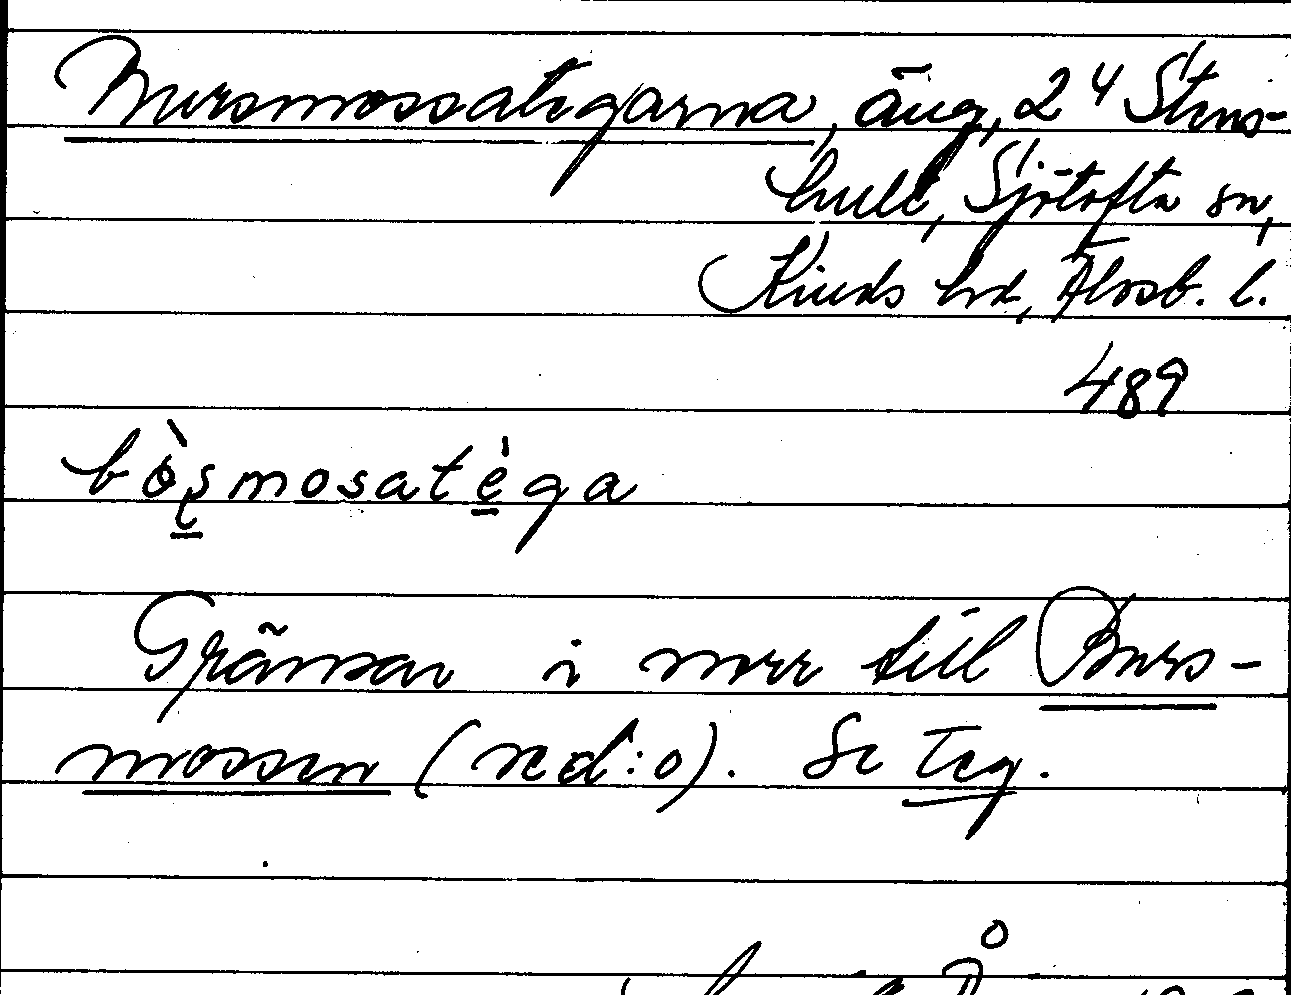 Bursmossategarna, äng, 2⁴ Stens-
hult, Sjötofta sn,
Kinds hd, Älvsb. l.
489
bòʂmosatèga
Gränsar i norr till Burs-
mossen (red:o). Se Teg.